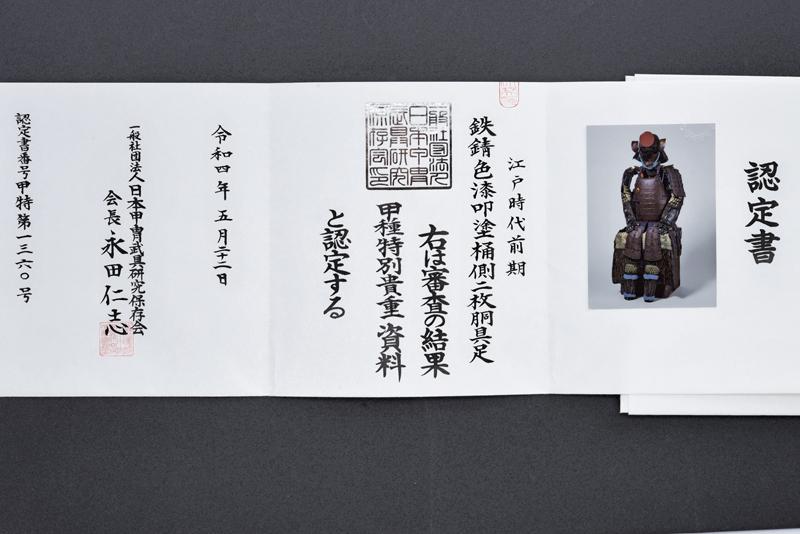 認定書
江戸時代前期
鉄錆色漆叩塗桶側二枚胴具足
右は審査の結果
甲種特別貴重資料
と認定する
令和四年五月二十二日
一般社団法人日本甲冑武具研究保存会
会長永田仁志
認定書番号甲特第一三六〇号